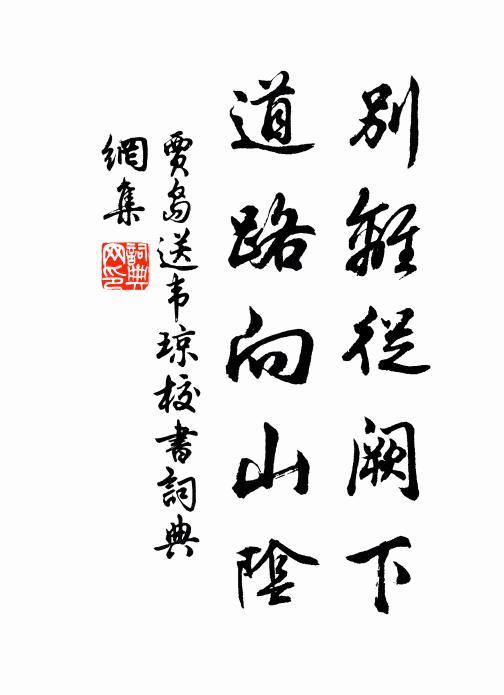 別離從闕下
道路向山陰
賈島送韦琼校書詞典
網集
詞典
网印